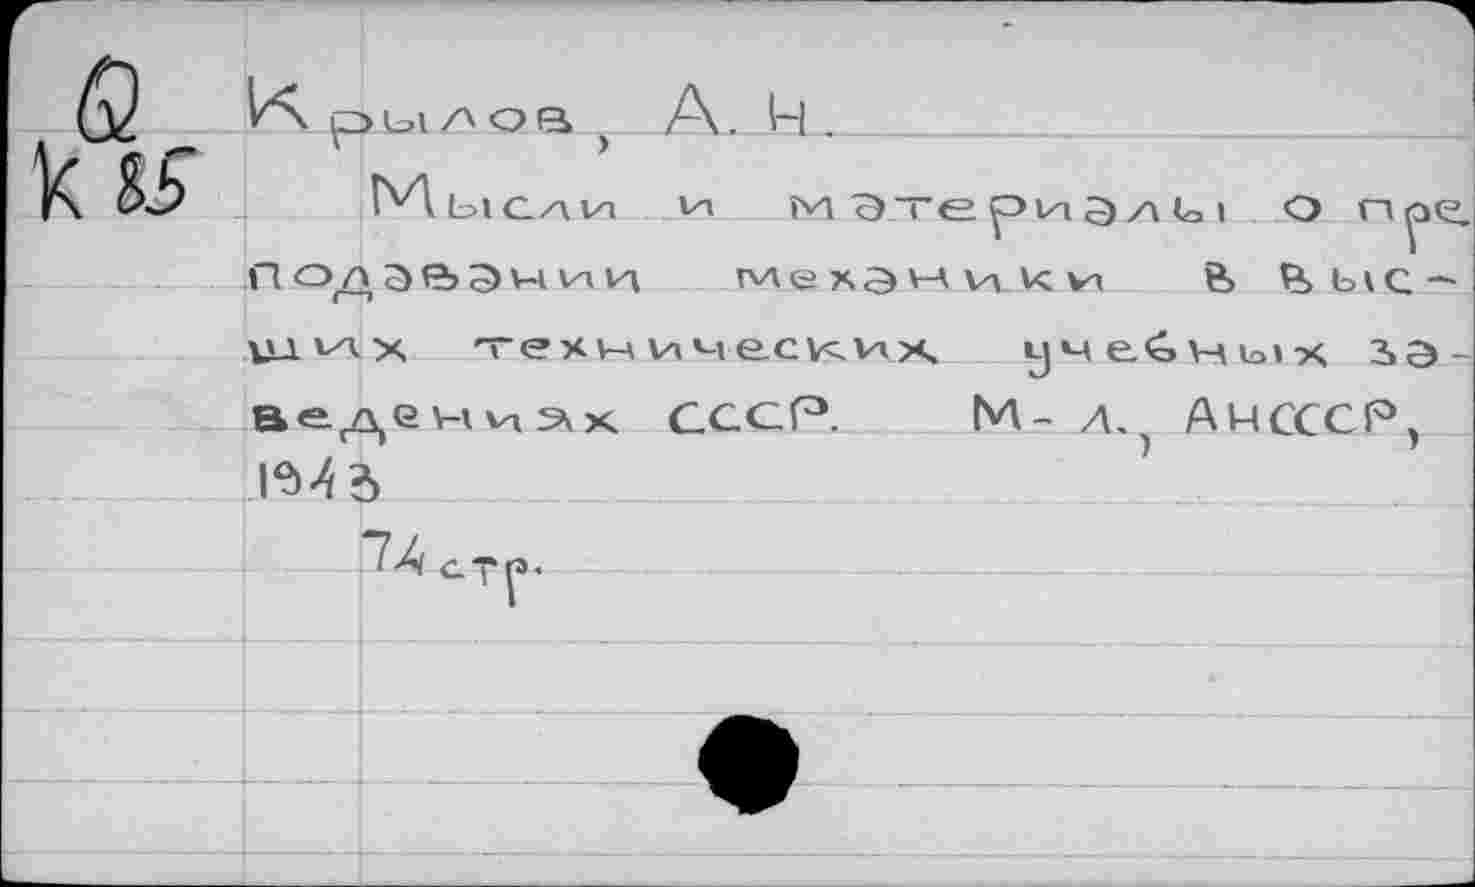 Q
К 85
Крылов, А. Н.
Мысли и материалы о пре
подавании механики в выс-
ших технических учебных за-
ведениях СССР. М-Л., АНСССР,
1943
74 стр.